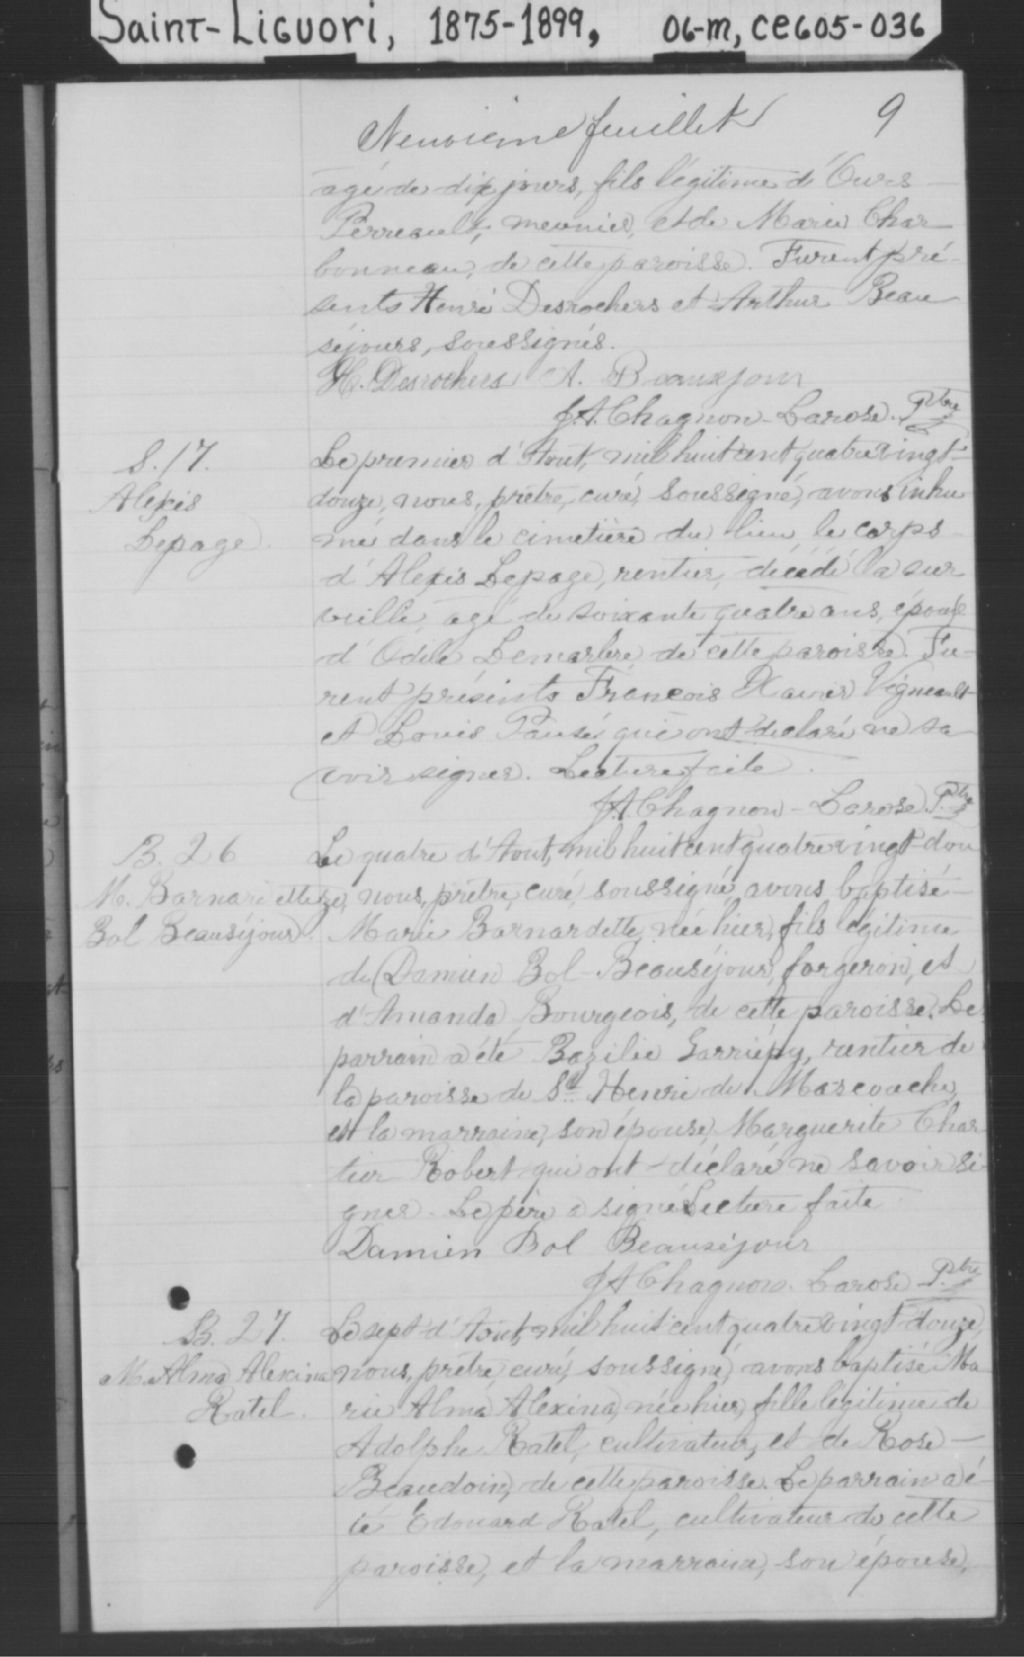 Saint-Liguori, 1875-1899, 06-m, ce605-036
Neuvième feuillet 9
agé de dix jours, fils légitime d'Ours
Perreault, meunier, et de Marie Char-
bonneau, de cette paroisse. Furent pré-
sents Henri Desrochers et Arthur Beau
séjours, soussignés.
H. Desrochers A. Beausejour
J.A. Chagnon-Larose. Ptre
S. 17.
Alexis
Lepage.
Le premier d'Aout, mil huit cent quatre vingt-
douze, nous, prêtre, curé, soussigné, avons inhu
mé dans le cimetière du lieu le corps
d'Alexis Lepage, rentier, décédé la sur
veille, agé de soixante quatre ans, époux
d'Odile Lemarbre de cette paroisse. Fu-
rent présents François Xavier Vigneault
et Louis Pausé qui ont déclaré ne sa
voir signer. Lecture faite.
J.A. Chagnon-Larose. Ptre
B. 26
M. Barnardette
Bol Beauséjour.
Le quatre d'Aout, mil huit cent quatre vingt-dou
ze, nous, prêtre, curé, soussigné, avons baptisé
Marie Barnardette, née hier, fils légitime
de Damien Bol-Beauséjour, forgeron, et
d'Amanda Bourgeois, de cette paroisse. Le
parrain a été Bazilie Garriépy, rentier de
la paroisse de St. Henri de Mascouche,
et la marraine, son épouse, Marguerite Char
tier Robert qui ont déclaré ne savoir si
gner. Le père a signé Lecture faite
Damien Bol Beauséjour
J A Chagnon. Larose Ptre
B. 27.
M. Alma Alexina
Ratel.
Le sept d'Aout, mil huit cent quatre vingt-douze,
nous, prêtre, curé, soussigné, avons baptisé Ma
rie Alma Alexina, née hier, fille légitime de
Adolphe Ratel, cultivateur, et de Rose
Beaudoin, de cette paroisse. Le parrain a é-
té Edouard Ratel, cultivateur de cette
paroisse, et la marraine, son épouse,